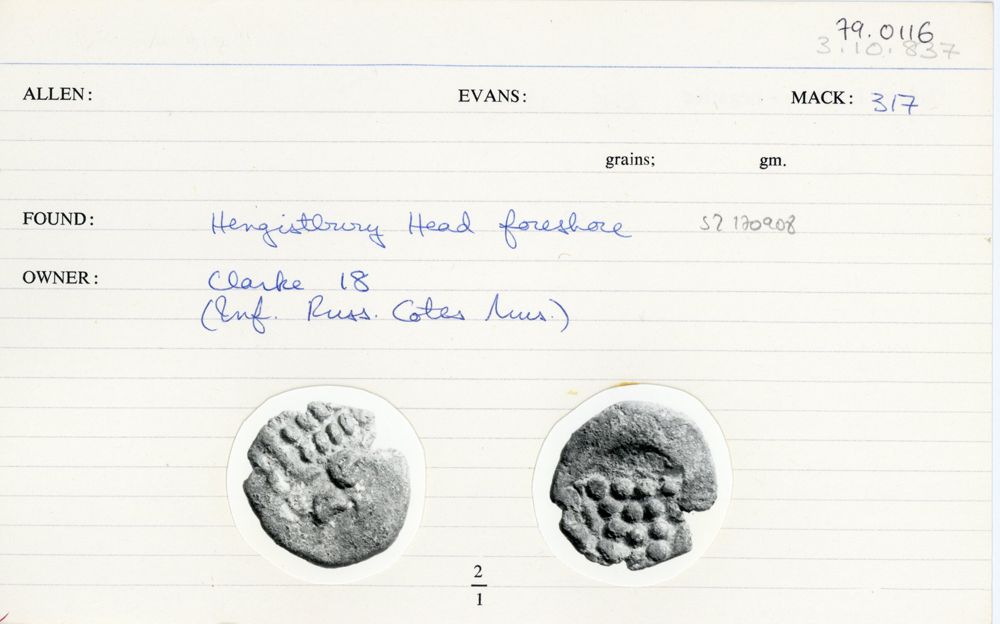 79.0116
3.10.837
ALLEN: EVANS: MACK: 317
grains; gm.
FOUND: Hengistbury Head foreshore SZ 170908
OWNER: Clarke 18
(Inf. Russ. Cotes Mus.)
2
1